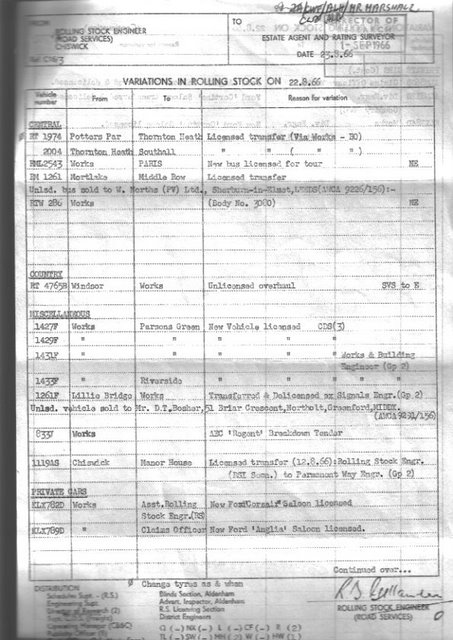 MR MARSHALL
FROM
ROLLING STOCK ENGINEER
(ROAD SERVICES)
CHISWICK
TO
ESTATE AGENT AND RATING SURVEYOR
DIRECTOR OF
1-SEP 1966
DATE 23.8.66
VARIATIONS IN ROLLING STOCK ON 22.8.66
Vehicle number From To Reason for variation
CENTRAL
RT 1974 Potters Par Thornton Heath Licensed transfer (Via Works - BO)
2004 Thornton Heath Southall " " ( " " )
RML2543 Works PARIS New bus licensed for tour NE
RM 1261 Mortlake Middle Row Licensed transfer
Unlsd. bus sold to W. Norths (PV) Ltd., Sherburn-in-Elmet, LEEDS(AMCA 9226/156):-
RTW 286 Works (Body No. 3080) NE
COUNTRY
RT 4765B Windsor Works Unlicensed overhaul SVS to E
MISCELLANEOUS
1427F Works Parsons Green New Vehicle licensed CDS(3)
1429F " " " " " "
1431F " " " " " Works & Building
Engineer (Gp 2)
1433F " Riverside " " " " "
1261F Lillie Bridge Works Transferred & Delicensed ex Signals Engr.(Gp 2)
Unlsd. vehicle sold to Mr. D.T. Bosher, 51 Briar Crescent, Northolt, Greenford, MIDDX.
(AMCA 9231/156)
833J Works AEC 'Regent' Breakdown Tender
1119AS Chiswick Manor House Licensed transfer (12.8.66):Rolling Stock Engr.
to Permanent Way Engr. (Gp 2)
PRIVATE CARS
KLX782D Works Asst.Rolling New Ford 'Corsair' Saloon licensed
Stock Engr.(RS)
KLX789D " Claims Officer New Ford 'Anglia' Saloon licensed.
Continued over...
DISTRIBUTION
Ø Change tyres as & when
Schedules Supt. (R.S.)
Engineering Supt.
Blinds Section, Aldenham
Advert. Inspector, Aldenham
R.S. Licensing Section
District Engineers
ROLLING STOCK ENGINEER
(ROAD SERVICES)